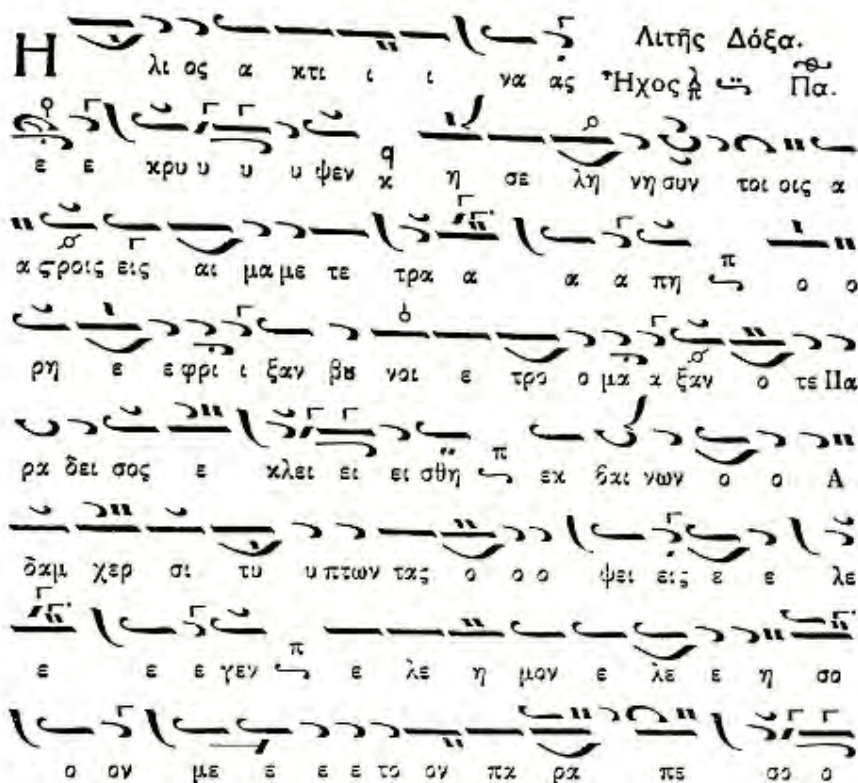 Λιτῆς Δόξα.
Η λι ος α κτι ι ι να ας Ἦχος λ π Πα.
ε ε κρυ υ υ υ ψεν q κ η σε λη νη συν τοι οις α
α ϛροις εις αι μα με τε τρα α α α πη π ο ο
ρη ε ε φρι ι ξαν βȣ νοι ε τρο ο μα α ξαν ο τε Πα
ρα δει σος ε κλει ει ει σθη π εκ βαι νων ο ο Α
δαμ χερ σι τυ υ πτων τας ο ο ο ψει εις ε ε λε
ε ε ε γεν π ε λε η μον ε λε ε η σο
ο ον με ε ε ε το ον πα ρα πε σο ο